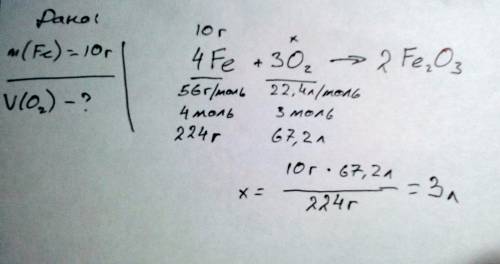 Дано:
m(Fe) = 10г
V(O₂) - ?
10г x
4Fe + 3O₂ → 2Fe₂O₃
56г/моль 22,4л/моль
4 моль 3 моль
224г 67,2л
x = 10г · 67,2л / 224г = 3л